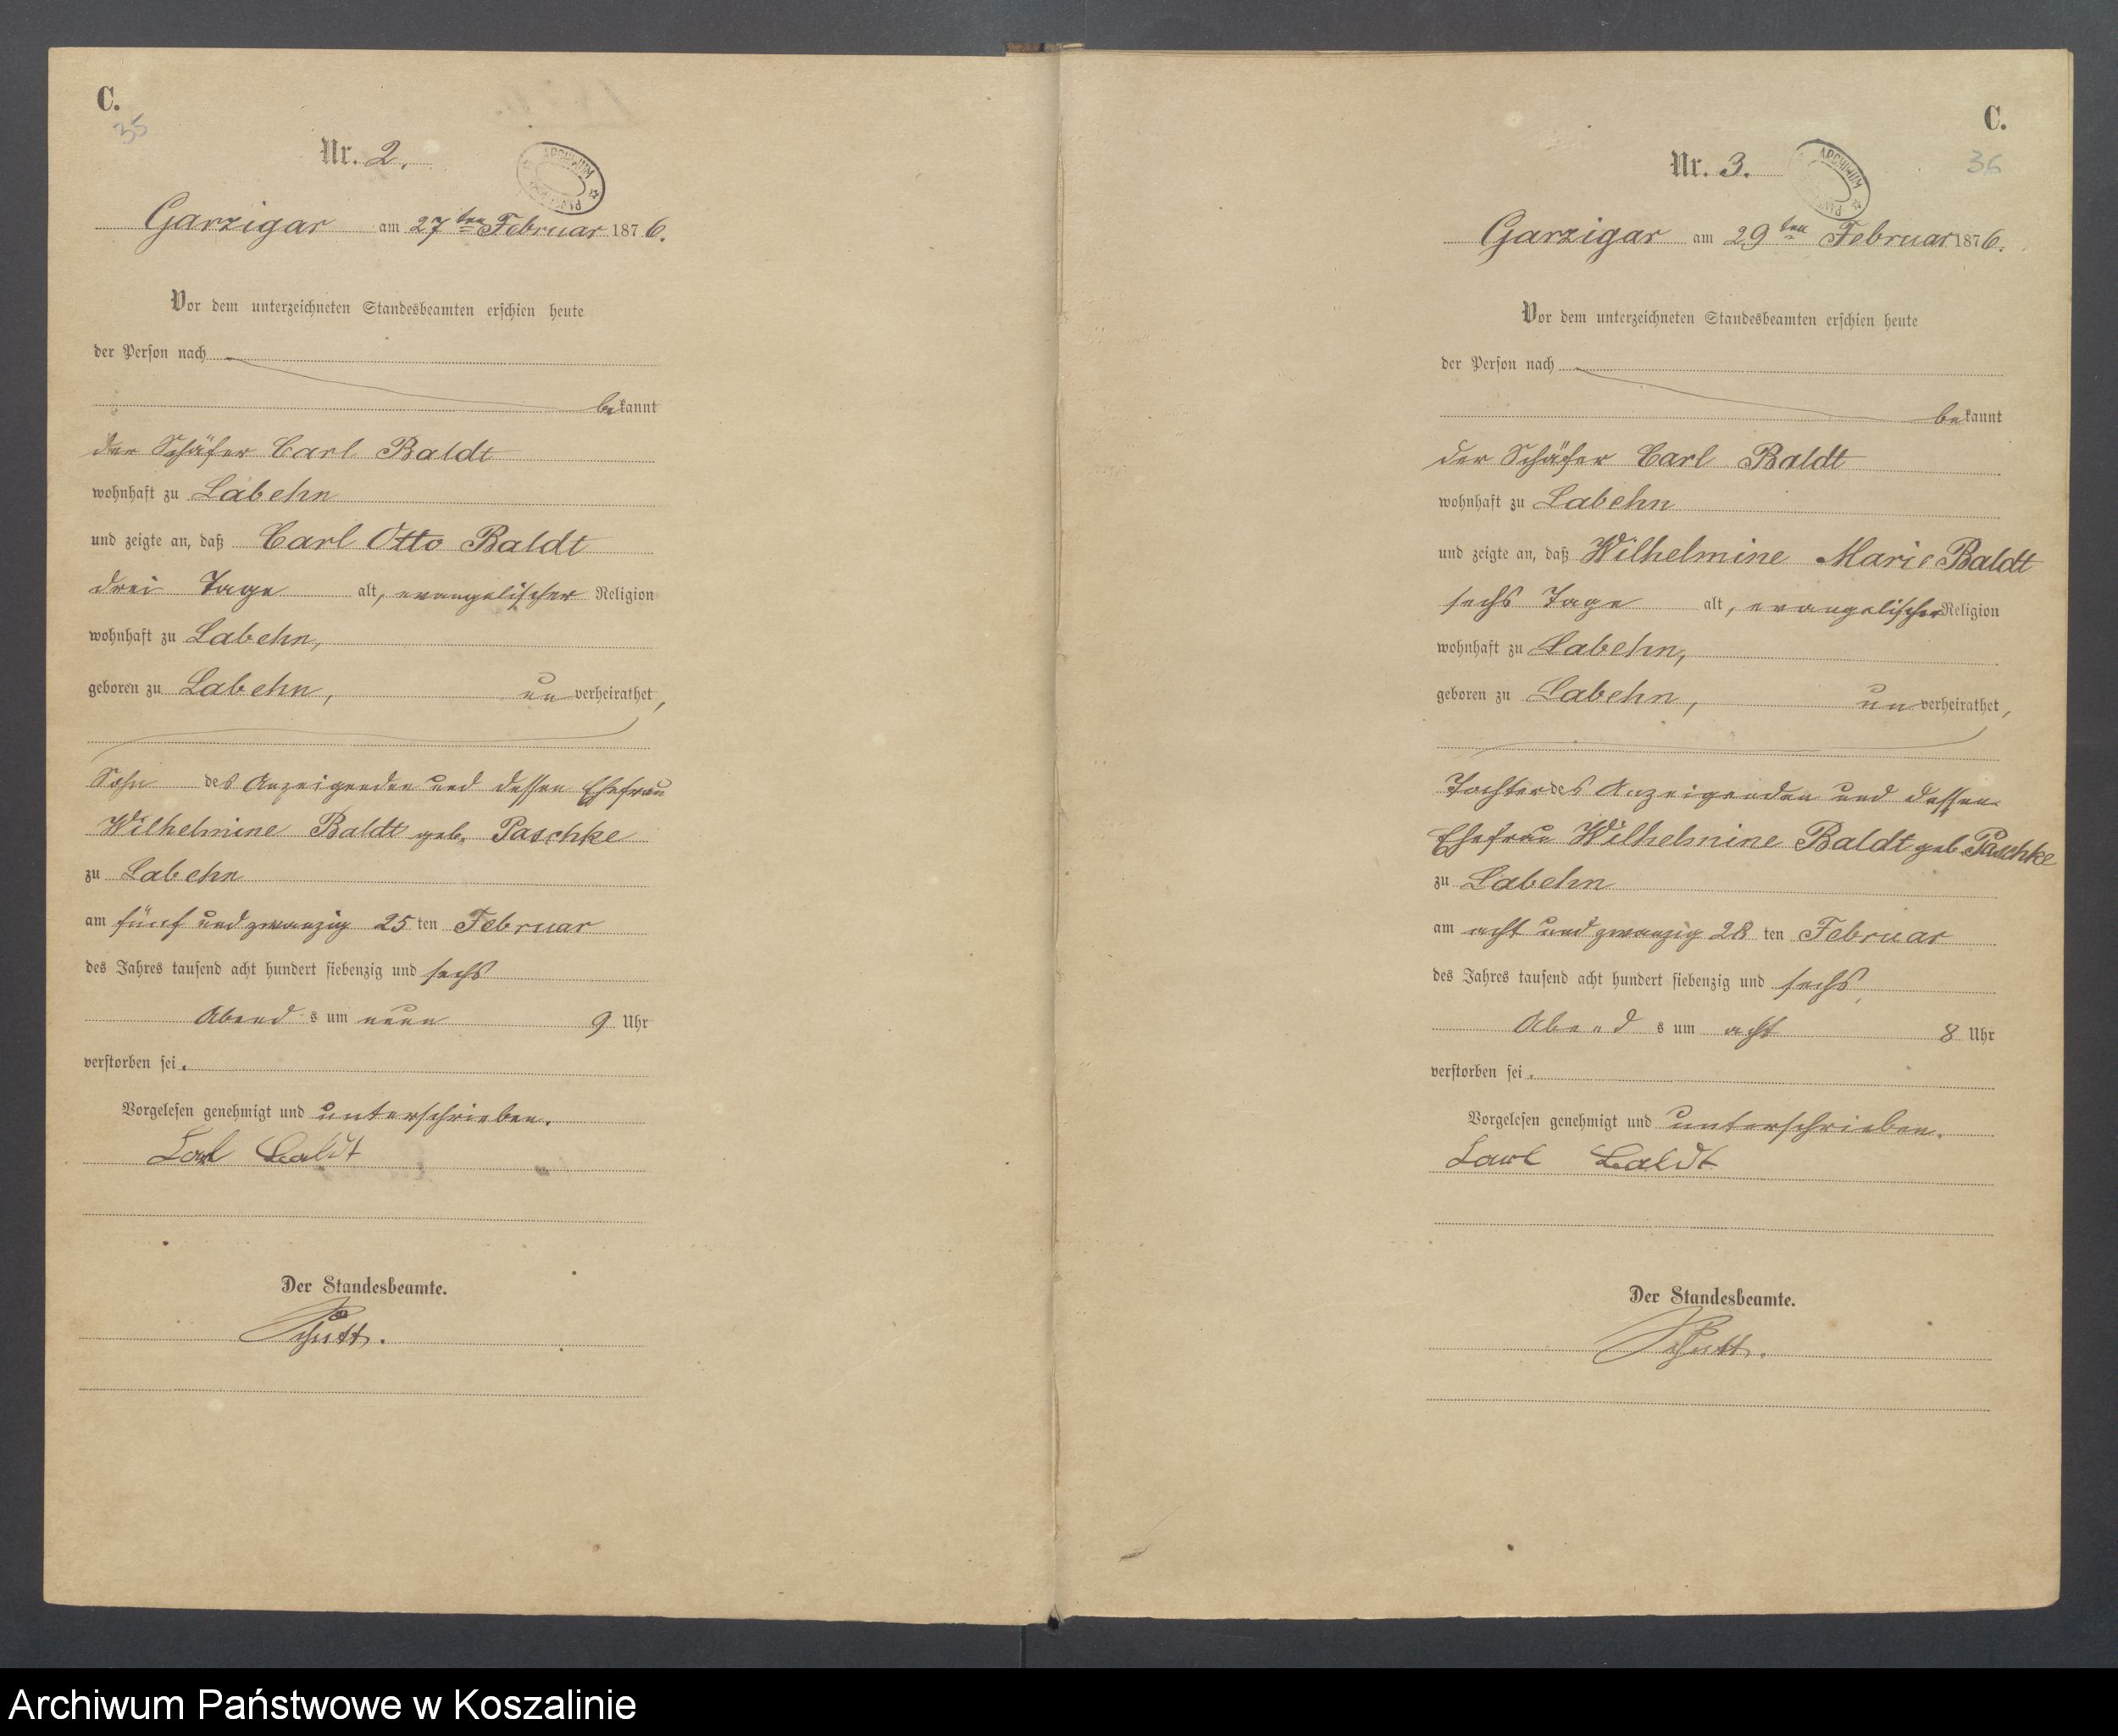 C.
35
Nr. 2.
ARCHIWUM
Garzigar am 27ten Februar 1876.
Vor dem unterzeichneten Standesbeamten erschien heute
der Person nach
bekannt
der Schäfer Carl Baldt
wohnhaft zu Labehn
und zeigte an, daß Carl Otto Baldt
drei Tage alt, evangelischer Religion
wohnhaft zu Labehn,
geboren zu Labehn, unverheirathet,
Sohn des Anzeigenden und dessen Ehefrau
Wilhelmine Baldt geb. Paschke
zu Labehn
am fünf und zwanzig 25 ten Februar
des Jahres tausend acht hundert siebenzig und sechs
Abends um neun 9 Uhr
verstorben sei.
Vorgelesen genehmigt und unterschrieben.
Carl Baldt
Der Standesbeamte.
Schütt.
C.
36
Nr. 3.
ARCHIWUM
Garzigar am 29ten Februar 1876.
Vor dem unterzeichneten Standesbeamten erschien heute
der Person nach
bekannt
der Schäfer Carl Baldt
wohnhaft zu Labehn
und zeigte an, daß Wilhelmine Marie Baldt
sechs Tage alt, evangelischer Religion
wohnhaft zu Labehn,
geboren zu Labehn, unverheirathet,
Tochter des Anzeigenden und dessen
Ehefrau Wilhelmine Baldt geb. Paschke
zu Labehn
am acht und zwanzig 28 ten Februar
des Jahres tausend acht hundert siebenzig und sechs,
Abends um acht 8 Uhr
verstorben sei.
Vorgelesen genehmigt und unterschrieben.
Carl Baldt
Der Standesbeamte.
Schütt.
Archiwum Państwowe w Koszalinie